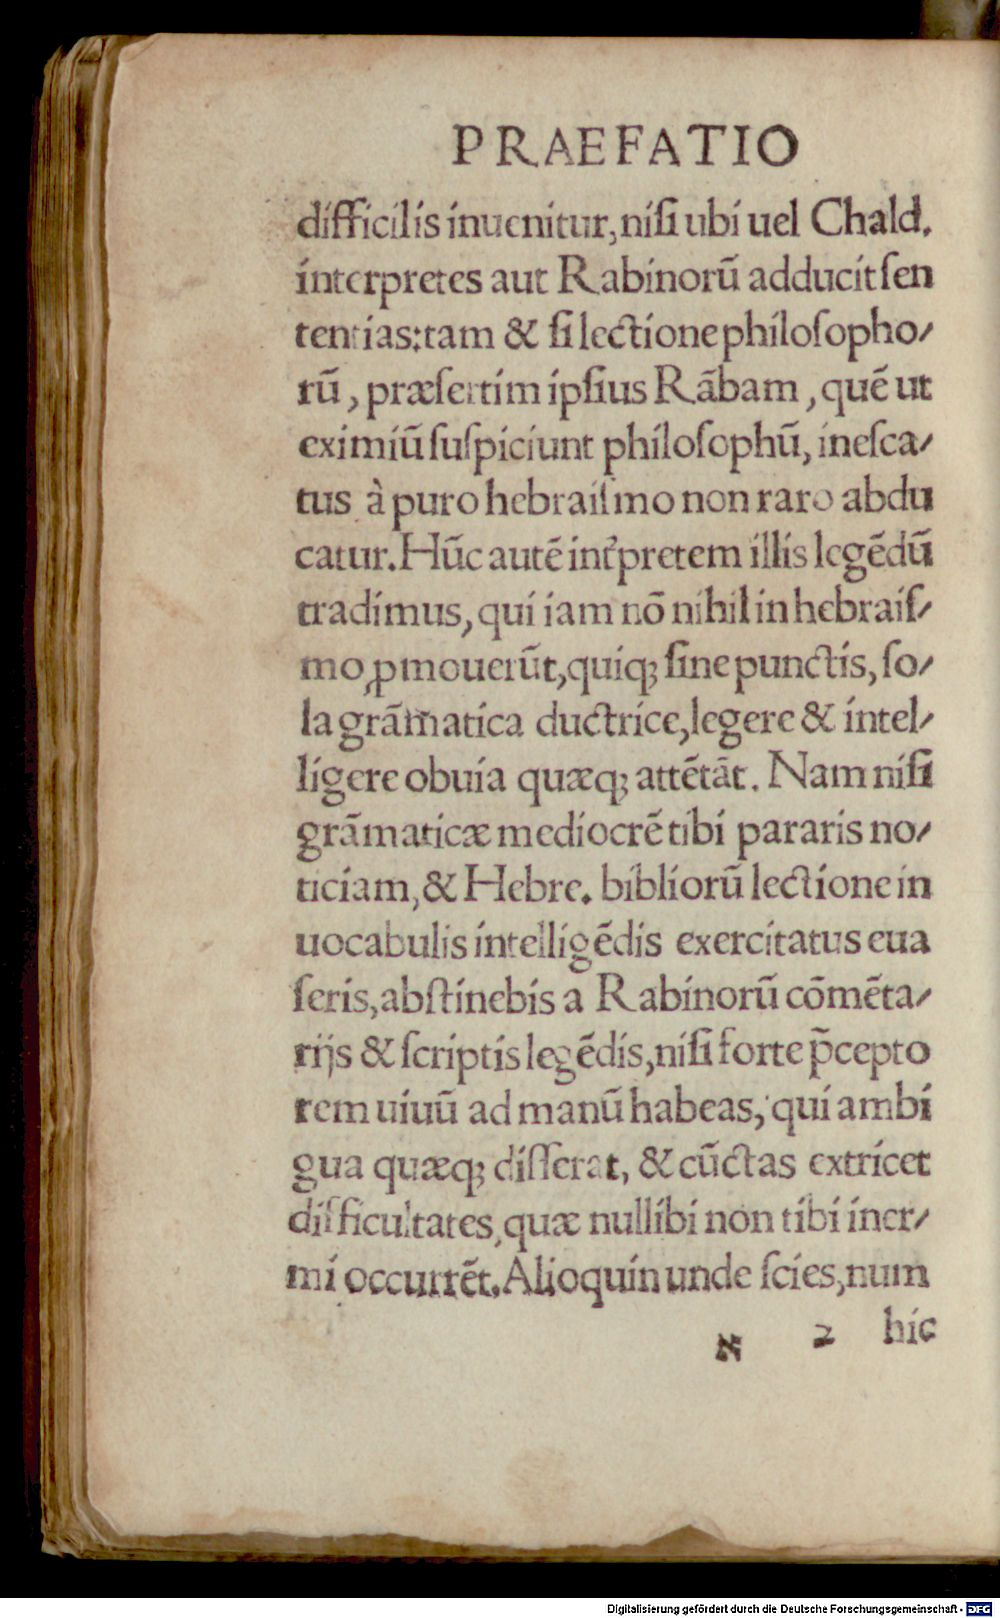 PRAEFATIO
difficilis inuenitur, niſi ubi uel Chald.
interpretes aut Rabinorū adducit ſen
tentias: tam & ſi lectione philoſopho/
rū, præſertim ipſius Rābam, quē ut
eximiū ſuſpiciunt philoſophū, ineſca/
tus à puro hebraiſmo non raro abdu
catur. Hūc autē intp̃retem illis legēdū
tradimus, qui iam nō nihil in hebraiſ/
mo ꝓmouerūt, quiqꝫ ſine punctis, ſo/
la grām̄atica ductrice, legere & intel/
ligere obuia quæqꝫ attētāt. Nam niſi
grāmaticæ mediocrē tibi pararis no/
ticiam, & Hebre. bibliorū lectione in
uocabulis intelligēdis exercitatus eua
ſeris, abſtinebis a Rabinorū cōmēta/
rijs & ſcriptis legēdis, niſi forte p̄cepto
rem uiuū ad manū habeas, qui ambi
gua quæqꝫ diſſerat, & cūctas extricet
difficultates, quæ nullibi non tibi iner/
mi occurrēt. Alioquin unde ſcies, num
א 2 hic
Digitalisierung gefördert durch die Deutsche Forschungsgemeinschaft - DFG